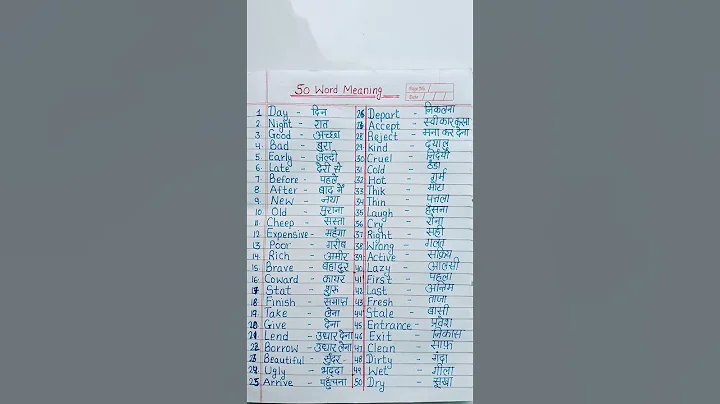 50 Word Meaning
Page No.
Date
1. Day - दिन
2. Night - रात
3. Good - अच्छा
4. Bad - बुरा
5. Early - जल्दी
6. Late - देरी से
7. Before - पहले
8. After - बाद में
9. New - नया
10. Old - पुराना
11. Cheep - सस्ता
12. Expensive - महँगा
13. Poor - गरीब
14. Rich - अमीर
15. Brave - बहादुर
16. Coward - कायर
17. Stat - शुरू
18. Finish - समाप्त
19. Take - लेना
20. Give - देना
21. Lend - उधार देना
22. Borrow - उधार लेना
23. Beautiful - सुंदर
24. Ugly - भद्दा
25. Arrive - पहुंचना
26 Depart - निकलना
27 Accept - स्वीकार करना
28 Reject - मना कर देना
29. Kind - दयालु
30 Cruel - निर्दयी
31 Cold - ठंडा
32. Hot - गर्म
33 Thik - मोटा
34 Thin - पतला
35 Laugh - हँसना
36 Cry - रोना
37 Right - सही
38 Wrong - गलत
39 Active - सक्रिय
40 Lazy - आलसी
41 First - पहला
42 Last - अन्तिम
43 Fresh - ताजा
44 Stale - बासी
45 Entrance - प्रवेश
46 Exit - निकास
47 Clean - साफ
48 Dirty - गंदा
49 Wet - गीला
50 Dry - सूखा